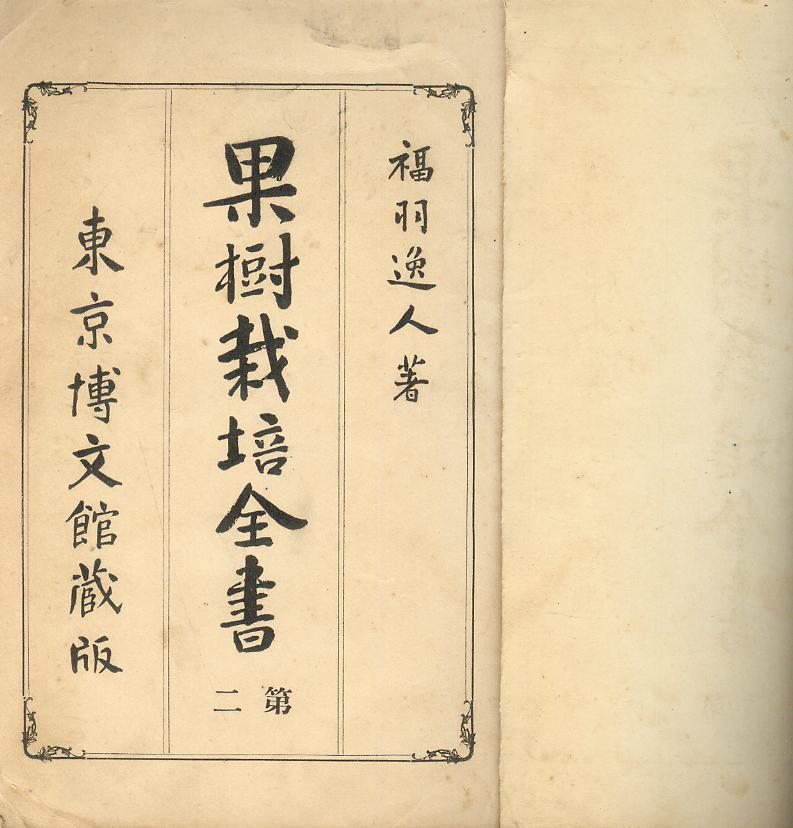 福羽逸人著
果樹栽培全書
第二
東京博文館蔵版